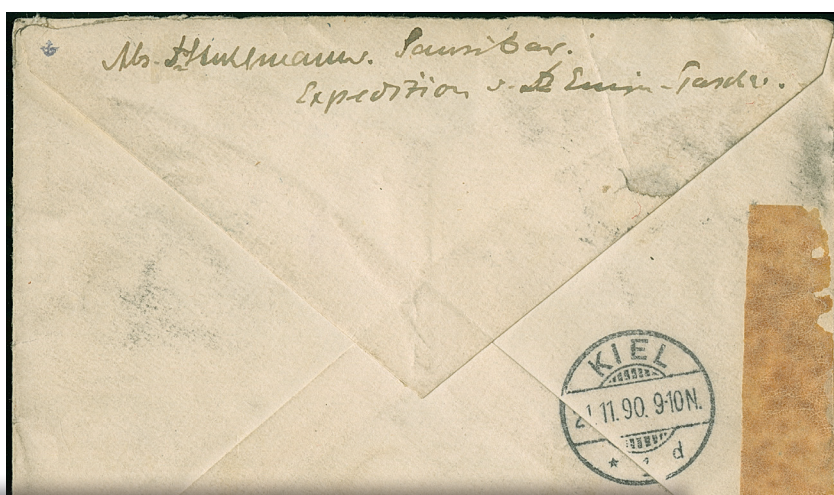 Abs. Dr Stuhlmann. Sansibar.
Expedition v. Dr Emin-Pascha.
KIEL
11.90. 9-10N.
* 1 d